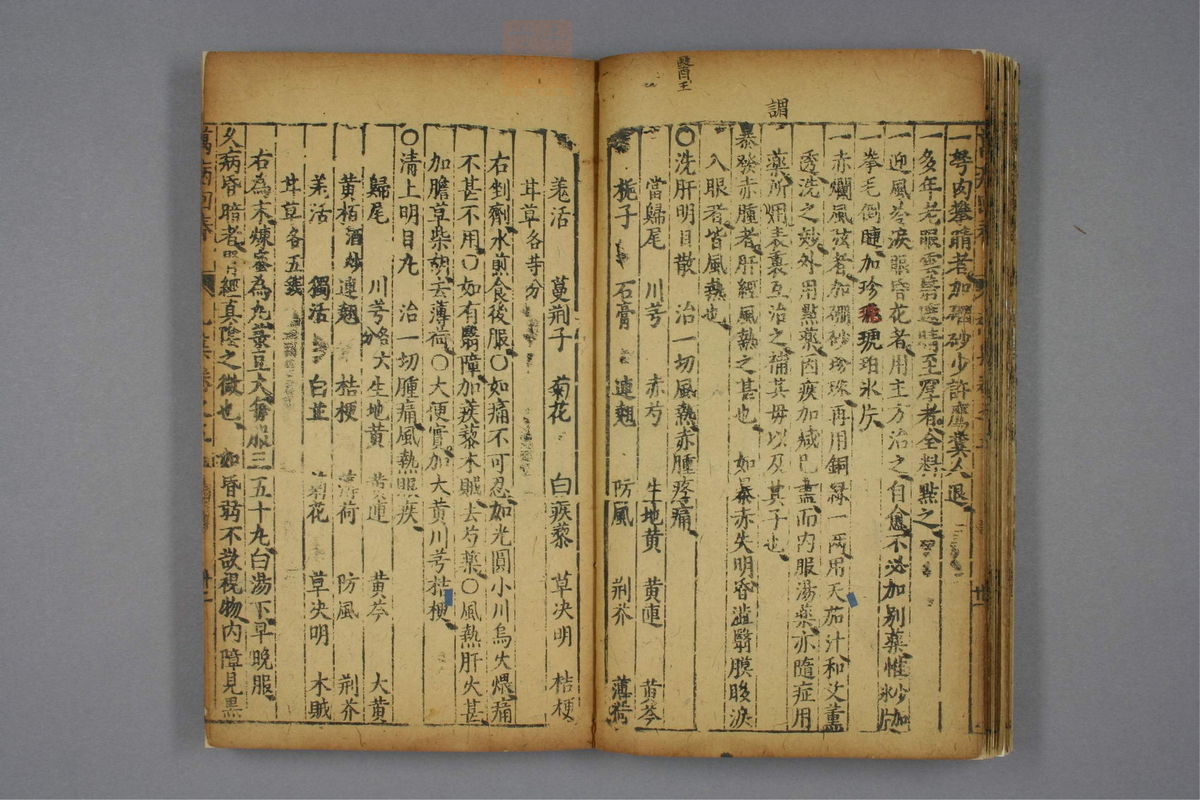 醫
王
謂
一努肉攀睛者加硼砂少許鷹糞人退
一多年老眼雲翳遮睛至厚者全料點之
迎風冷淚眼昏花者用主方治之自愈不必加别藥惟
拳毛倒睫加珍珠琥珀氷片
一赤爛風弦者加硼砂珍珠再用銅緑一兩用天茄汁和艾薰
透洗之妙外用點藥因疾加减已盡而内服湯藥亦隨症用
藥所謂表裏互治之補其母以及其子也
暴發赤腫者肝經風熱之甚也如暴赤失明昏澁翳膜眵淚
入眼者皆風熱也
〇洗肝明目散 治一切風熱赤腫疼痛
當歸尾 川芎 赤芍 生地黄 黄連 黄芩
梔子 石膏 連翹 防風 荆芥 薄荷
羗活 蔓荆子 菊花 白蒺藜 草决明 桔梗
甘草各等分
右剉劑水煎食後服〇如痛不可忍如光圓小川烏火煨痛
不甚不用〇如有翳障加蒺藜木賊去芍藥〇風熱肝火甚
加膽草柴胡去薄荷〇大便實加大黄川芎桔梗
〇清上明目丸 治一切腫痛風熱眼疾
歸尾 川芎各六分 生地黄 黄連 黄芩 大黄
黄栢酒炒 連翹 桔梗 薄荷 防風 荆芥
羗活 獨活 白芷 菊花 草决明 木賊
甘草各五錢
右為末煉蜜為丸菉豆大每服三五十丸白湯下早晚服
久病昏暗者腎經真陰之微也如昏弱不欲視物内障見黒